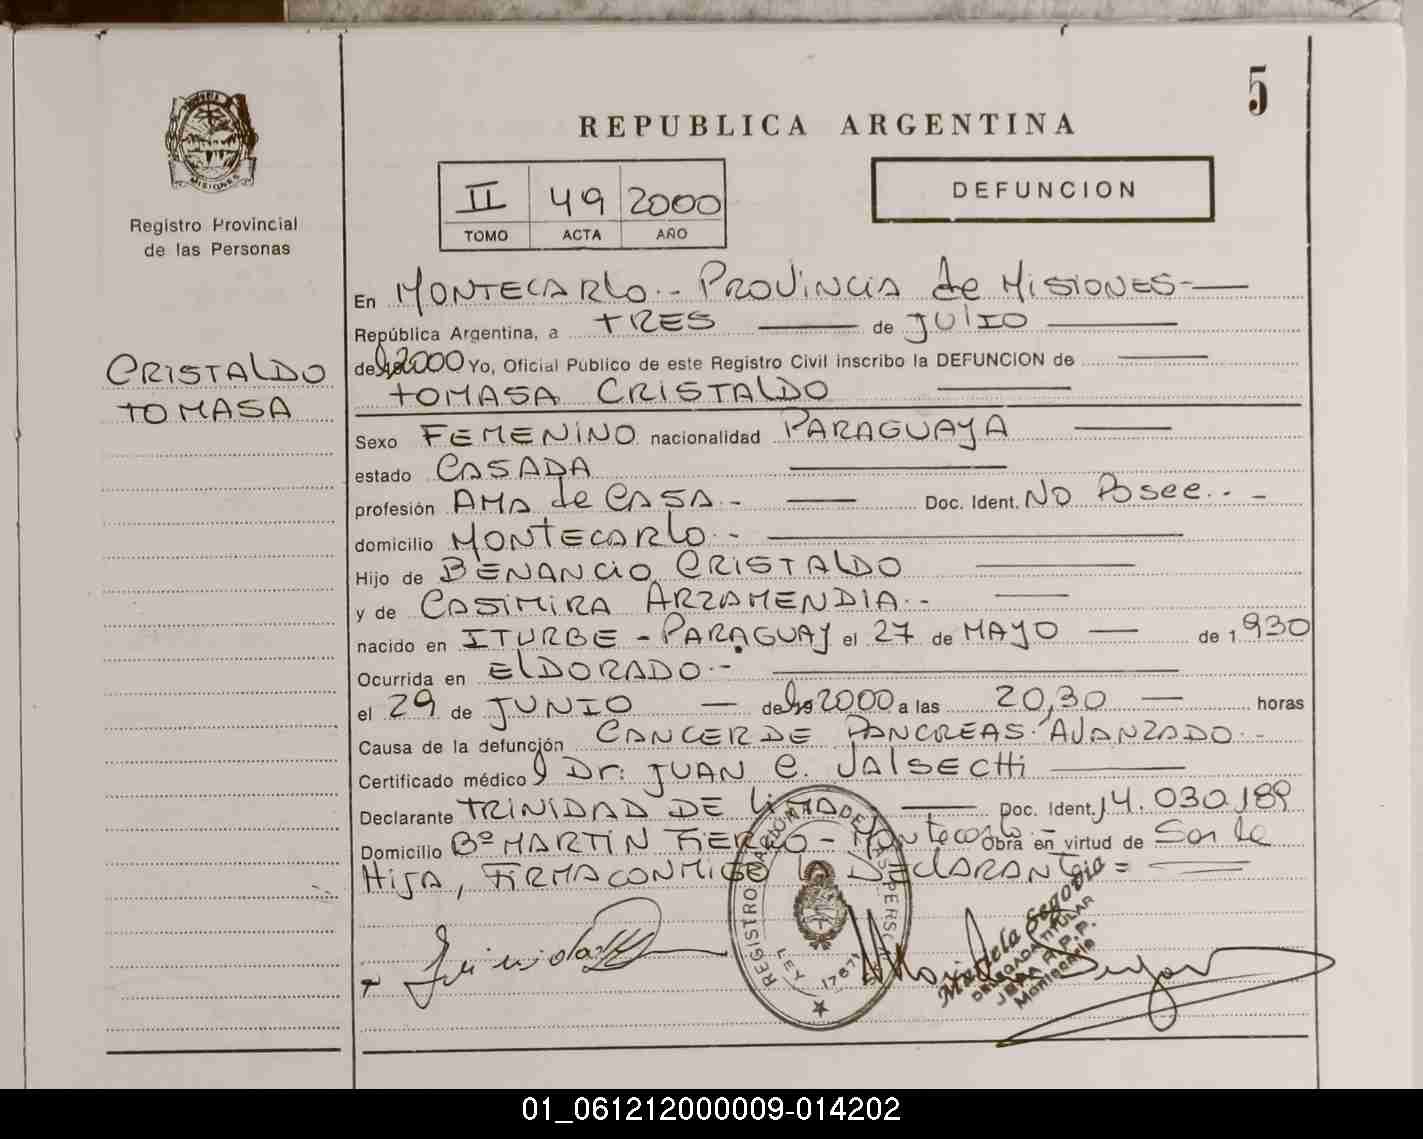 5
REPUBLICA ARGENTINA
MISIONES
Registro Provincial
de las Personas
II 49 2000
TOMO ACTA AÑO
DEFUNCION
CRISTALDO
TOMASA
En MONTECARLO.- PROVINCIA de MISIONES-
República Argentina, a TRES de JULIO
de 2000 Yo, Oficial Público de este Registro Civil inscribo la DEFUNCION de
TOMASA CRISTALDO
Sexo FEMENINO nacionalidad PARAGUAYA
estado CASADA
profesión AMA de CASA.- Doc. Ident. No Posee.-
domicilio MONTECARLO.-
Hijo de BENANCIO CRISTALDO
y de CASIMIRA ARZAMENDIA.-
nacido en ITURBE - PARAGUAY el 27 de MAYO de 1.930
Ocurrida en ELDORADO.-
el 29 de JUNIO de 2000 a las 20,30 horas
Causa de la defunción CANCER DE PANCREAS AVANZADO.-
Certificado médico Dr: JUAN C. VALSECHI
Declarante TRINIDAD DE LIMA Doc. Ident. 14.030.189
Domicilio Bº MARTIN FIERRO - Montecarlo.- Obra en virtud de Ser la
HIJA, FIRMA CONMIGO LA DECLARANTE =
REGISTRO NACIONAL DE LAS PERSONAS
LEY 17671
Mariela Segovia
DELEGADA TITULAR
Montecarlo
01_061212000009-014202